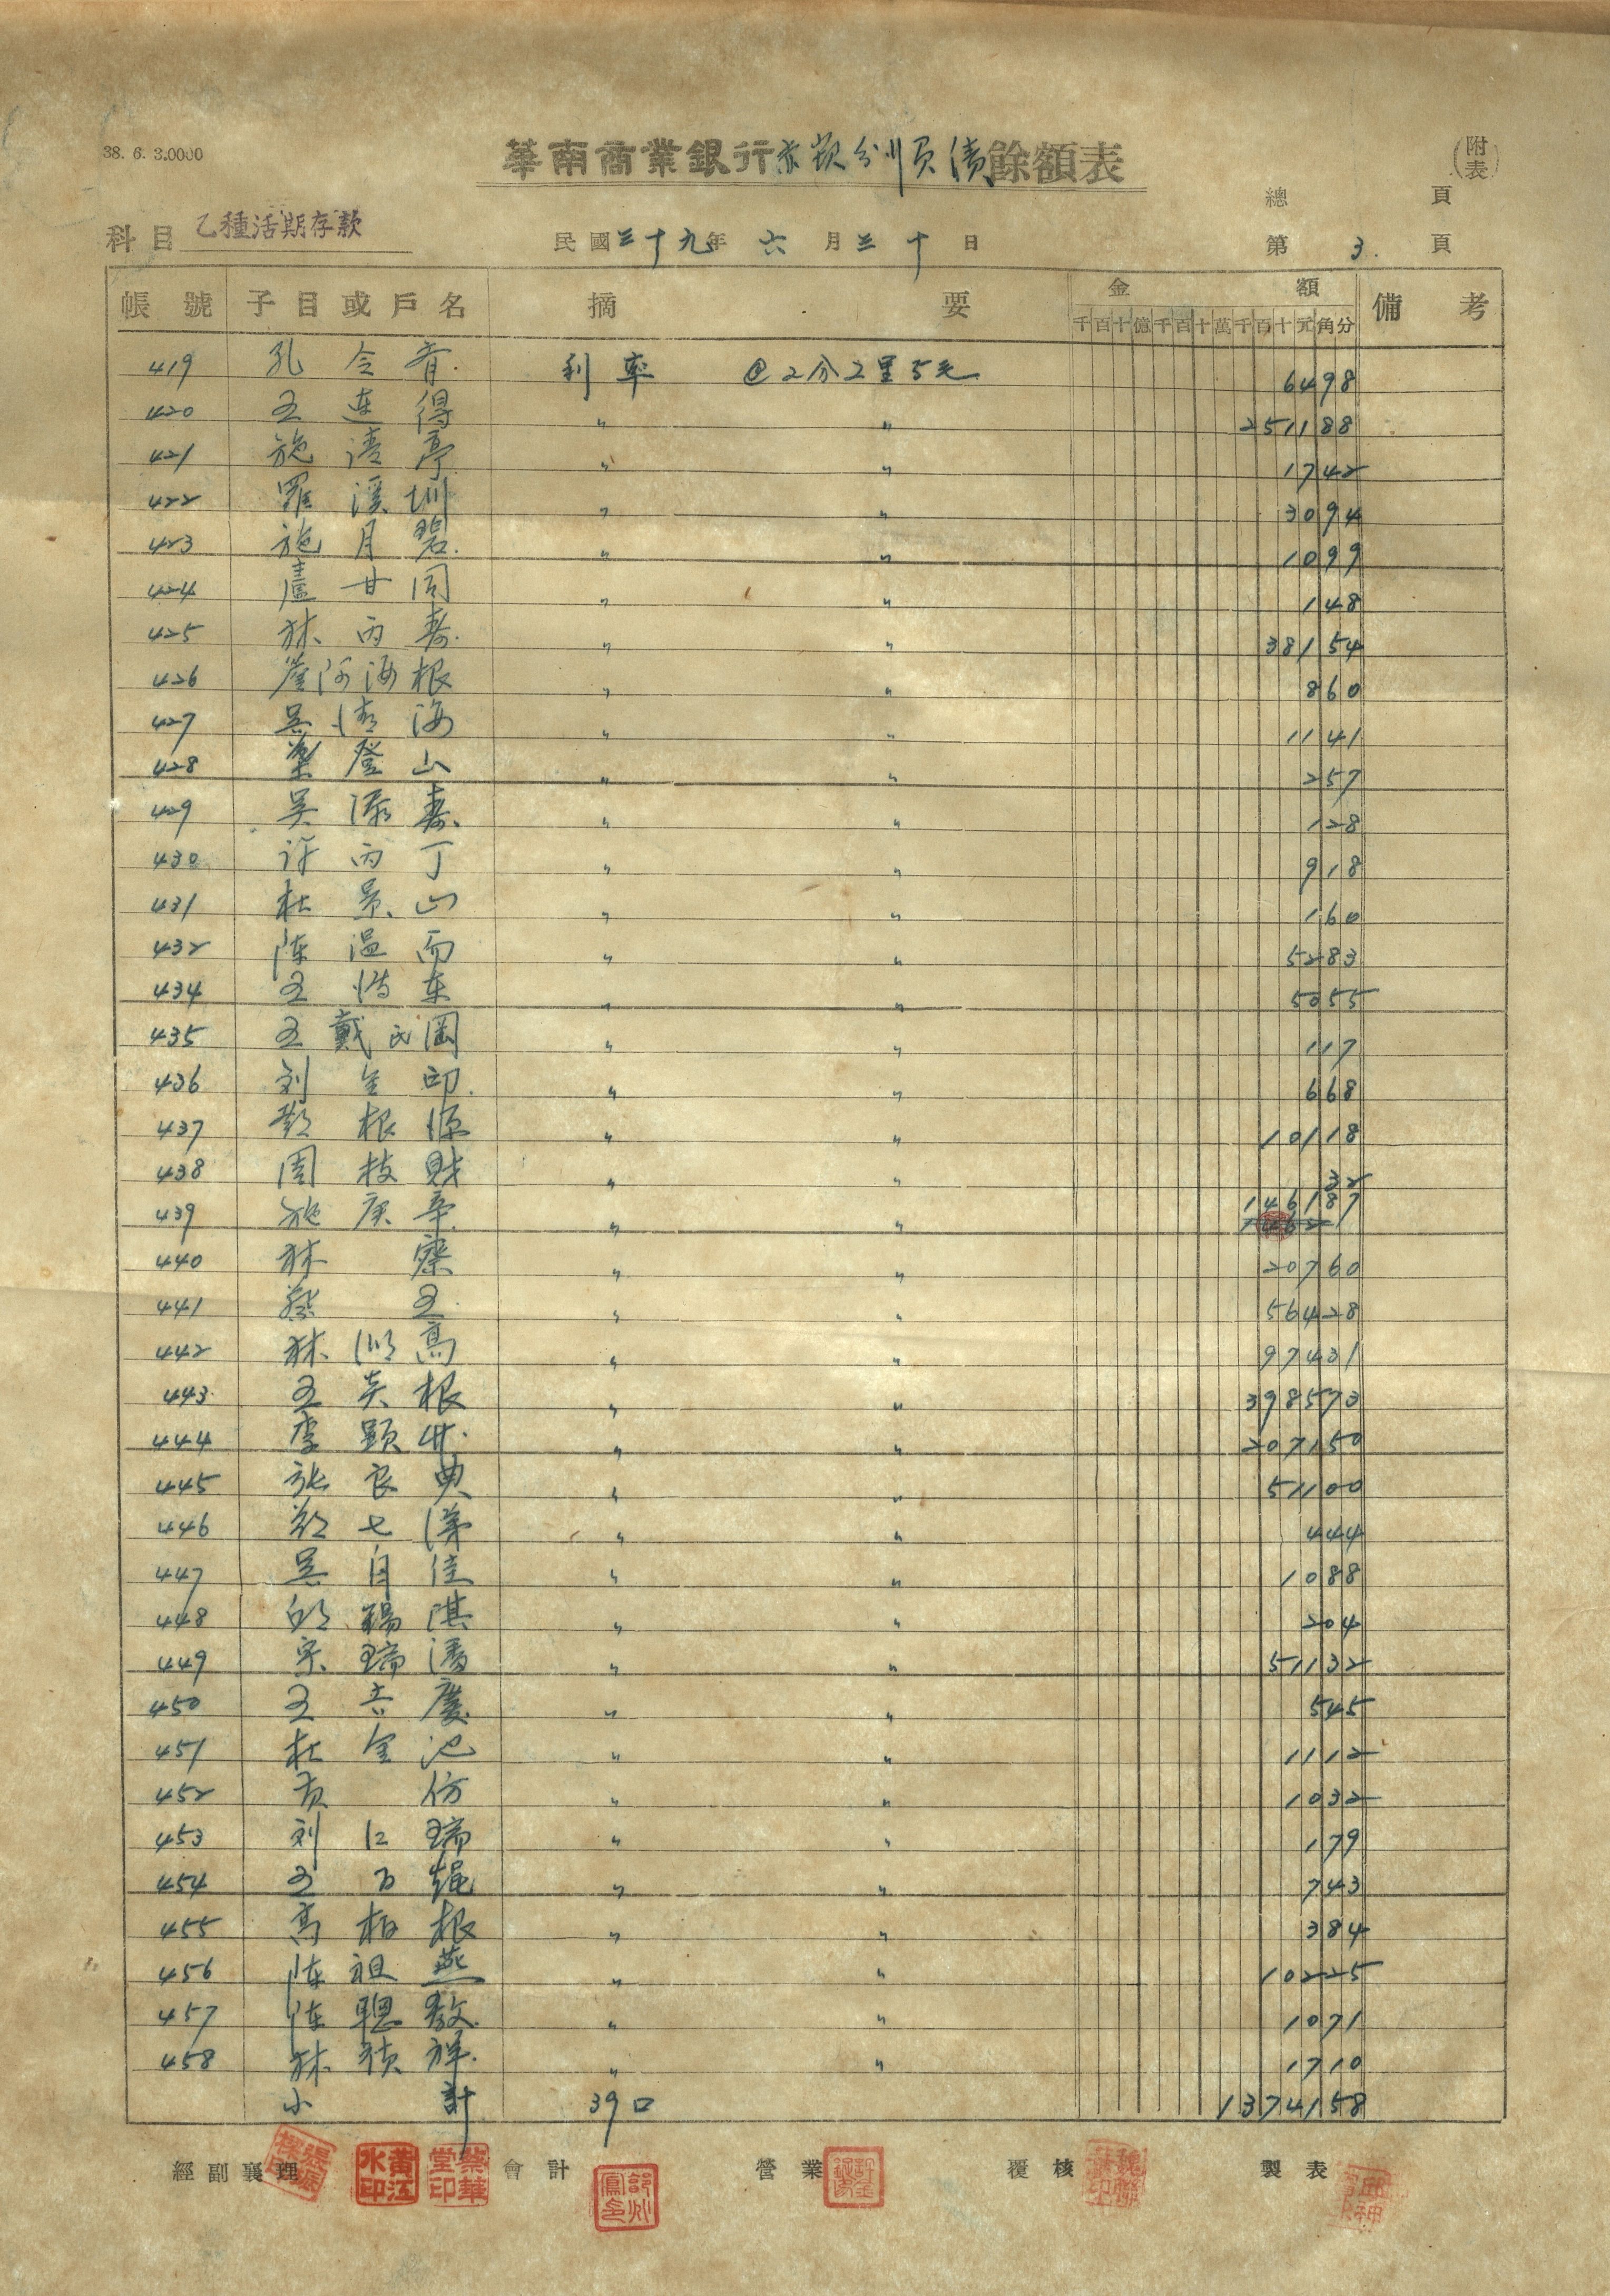 38. 6. 3.0000
華南商業銀行赤崁分行負債餘額表
(附表)
總 頁
科目 乙種活期存款
民國三十九年 六 月 三十 日
第 3. 頁
帳號 子目或戶名 摘要 金額 備考
千百十億千百十萬千百十元角分
419 孔令 利率 @2分2里5毛 6498
420 王連得 〃 〃 251188
421 施清亭 〃 〃 1742
422 羅溪圳 〃 〃 3094
423 施月碧 〃 〃 1099
424 盧甘同 〃 〃 148
425 林丙壽 〃 〃 38154
426 河海根 〃 〃 860
427 吳清海 〃 〃 1141
428 葉登山 〃 〃 257
429 吳添壽 〃 〃 128
430 許丙丁 〃 〃 918
431 杜景山 〃 〃 160
432 陈温而 〃 〃 5283
434 王 〃 〃 5055
435 王戴氏 〃 〃 117
436 刘金印 〃 〃 668
437 鄭根源 〃 〃 10118
438 周枝財 〃 〃 32
439 施庚辛 〃 〃 146187
440 林 察 〃 〃 20760
441 蔡 王 〃 〃 56428
442 林 高 〃 〃 97431
443 王炎根 〃 〃 398573
444 李顕 〃 〃 207150
445 張良典 〃 〃 51100
446 七 〃 〃 444
447 吳自佳 〃 〃 1088
448 錫淇 〃 〃 204
449 宋瑞濤 〃 〃 51132
450 王吉慶 〃 〃 545
451 杜金池 〃 〃 1112
452 仿 〃 〃 1032
453 刘江瑞 〃 〃 179
454 王百繩 〃 〃 743
455 高柏根 〃 〃 384
456 陈祖燕 〃 〃 10225
457 陈聰教 〃 〃 1071
458 林禎祥 〃 〃 1710
小計 39口 1374158
經副襄理 黃江水印 蔡華堂印 會計 營業 覆核 製表